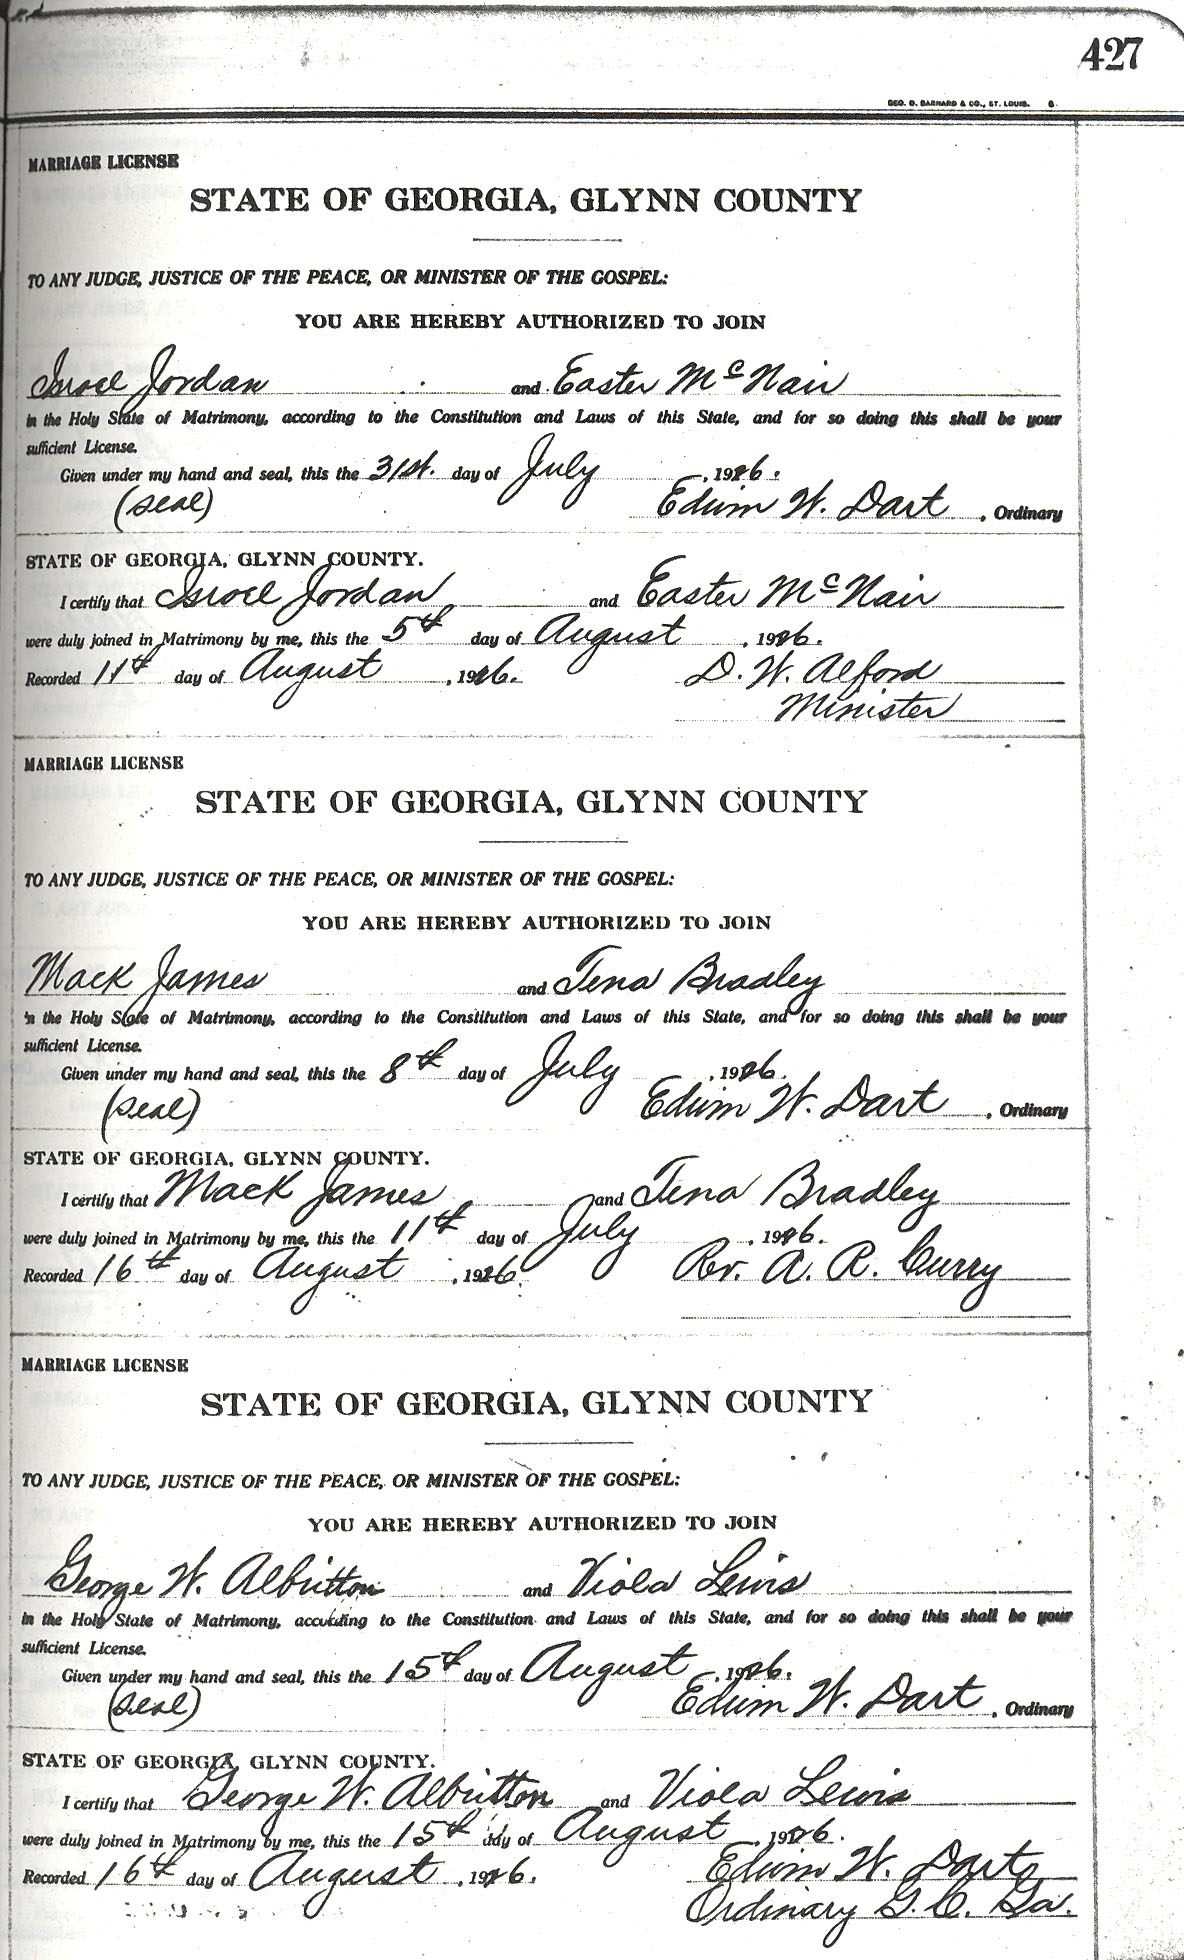 427
GEO. D. BARNARD & CO., ST. LOUIS. 6
MARRIAGE LICENSE
STATE OF GEORGIA, GLYNN COUNTY
TO ANY JUDGE, JUSTICE OF THE PEACE, OR MINISTER OF THE GOSPEL:
YOU ARE HEREBY AUTHORIZED TO JOIN
Israel Jordan and Easter McNair
in the Holy State of Matrimony, according to the Constitution and Laws of this State, and for so doing this shall be your
sufficient License.
Given under my hand and seal, this the 31st. day of July, 1926.
(seal) Edwin W. Dart, Ordinary
STATE OF GEORGIA, GLYNN COUNTY.
I certify that Israel Jordan and Easter McNair
were duly joined in Matrimony by me, this the 5th day of August, 1926.
Recorded 11th day of August, 1926. D. W. Alford
Minister
MARRIAGE LICENSE
STATE OF GEORGIA, GLYNN COUNTY
TO ANY JUDGE, JUSTICE OF THE PEACE, OR MINISTER OF THE GOSPEL:
YOU ARE HEREBY AUTHORIZED TO JOIN
Mack James and Tena Bradley
in the Holy State of Matrimony, according to the Constitution and Laws of this State, and for so doing this shall be your
sufficient License.
Given under my hand and seal, this the 8th day of July, 1926.
(seal) Edwin W. Dart, Ordinary
STATE OF GEORGIA, GLYNN COUNTY.
I certify that Mack James and Tena Bradley
were duly joined in Matrimony by me, this the 11th day of July, 1926.
Recorded 16th day of August, 1926. Rev. A. R. Curry
MARRIAGE LICENSE
STATE OF GEORGIA, GLYNN COUNTY
TO ANY JUDGE, JUSTICE OF THE PEACE, OR MINISTER OF THE GOSPEL:
YOU ARE HEREBY AUTHORIZED TO JOIN
George W. Albritton and Viola Lewis
in the Holy State of Matrimony, according to the Constitution and Laws of this State, and for so doing this shall be your
sufficient License.
Given under my hand and seal, this the 15th day of August, 1926.
(seal) Edwin W. Dart, Ordinary
STATE OF GEORGIA, GLYNN COUNTY.
I certify that George W. Albritton and Viola Lewis
were duly joined in Matrimony by me, this the 15th day of August, 1926.
Recorded 16th day of August, 1926. Edwin W. Dart,
Ordinary G. C. Ga.